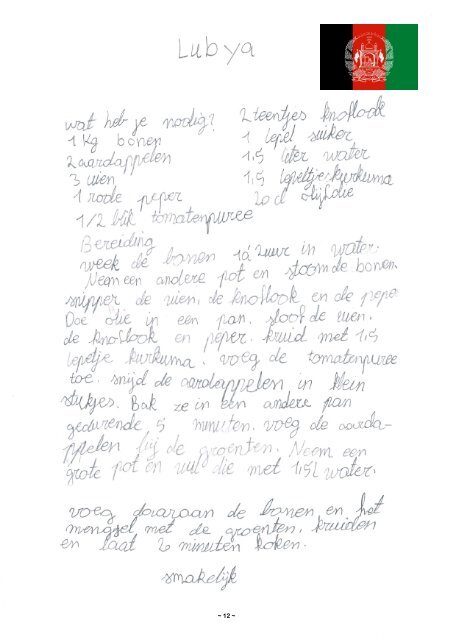 Lubya
wat heb je nodig?
1 Kg bonen
2 aardappelen
3 uien
1 rode peper
1/2 blik tomatenpuree
2 teentjes knoflook
1 lepel suiker
1,5 liter water
1,5 lepeltjes kurkuma
20 cl olijfolie
Bereiding
week de bonen 1 à 2 uur in water.
Neem een andere pot en stoom de bonen.
snipper de uien, de knoflook en de peper
Doe olie in een pan. stoof de uien,
de knoflook en peper. kruid met 1,5
lepeltje kurkuma. voeg de tomatenpuree
toe. snijd de aardappelen in klein
stukjes. Bak ze in een andere pan
gedurende 5 minuten. voeg de aarda-
ppelen bij de groenten. Neem een
grote pot en vul die met 1,5L water.
voeg daaraan de bonen en het
mengsel met de groenten, kruiden
en laat 20 minuten koken.
smakelijk
~ 12 ~